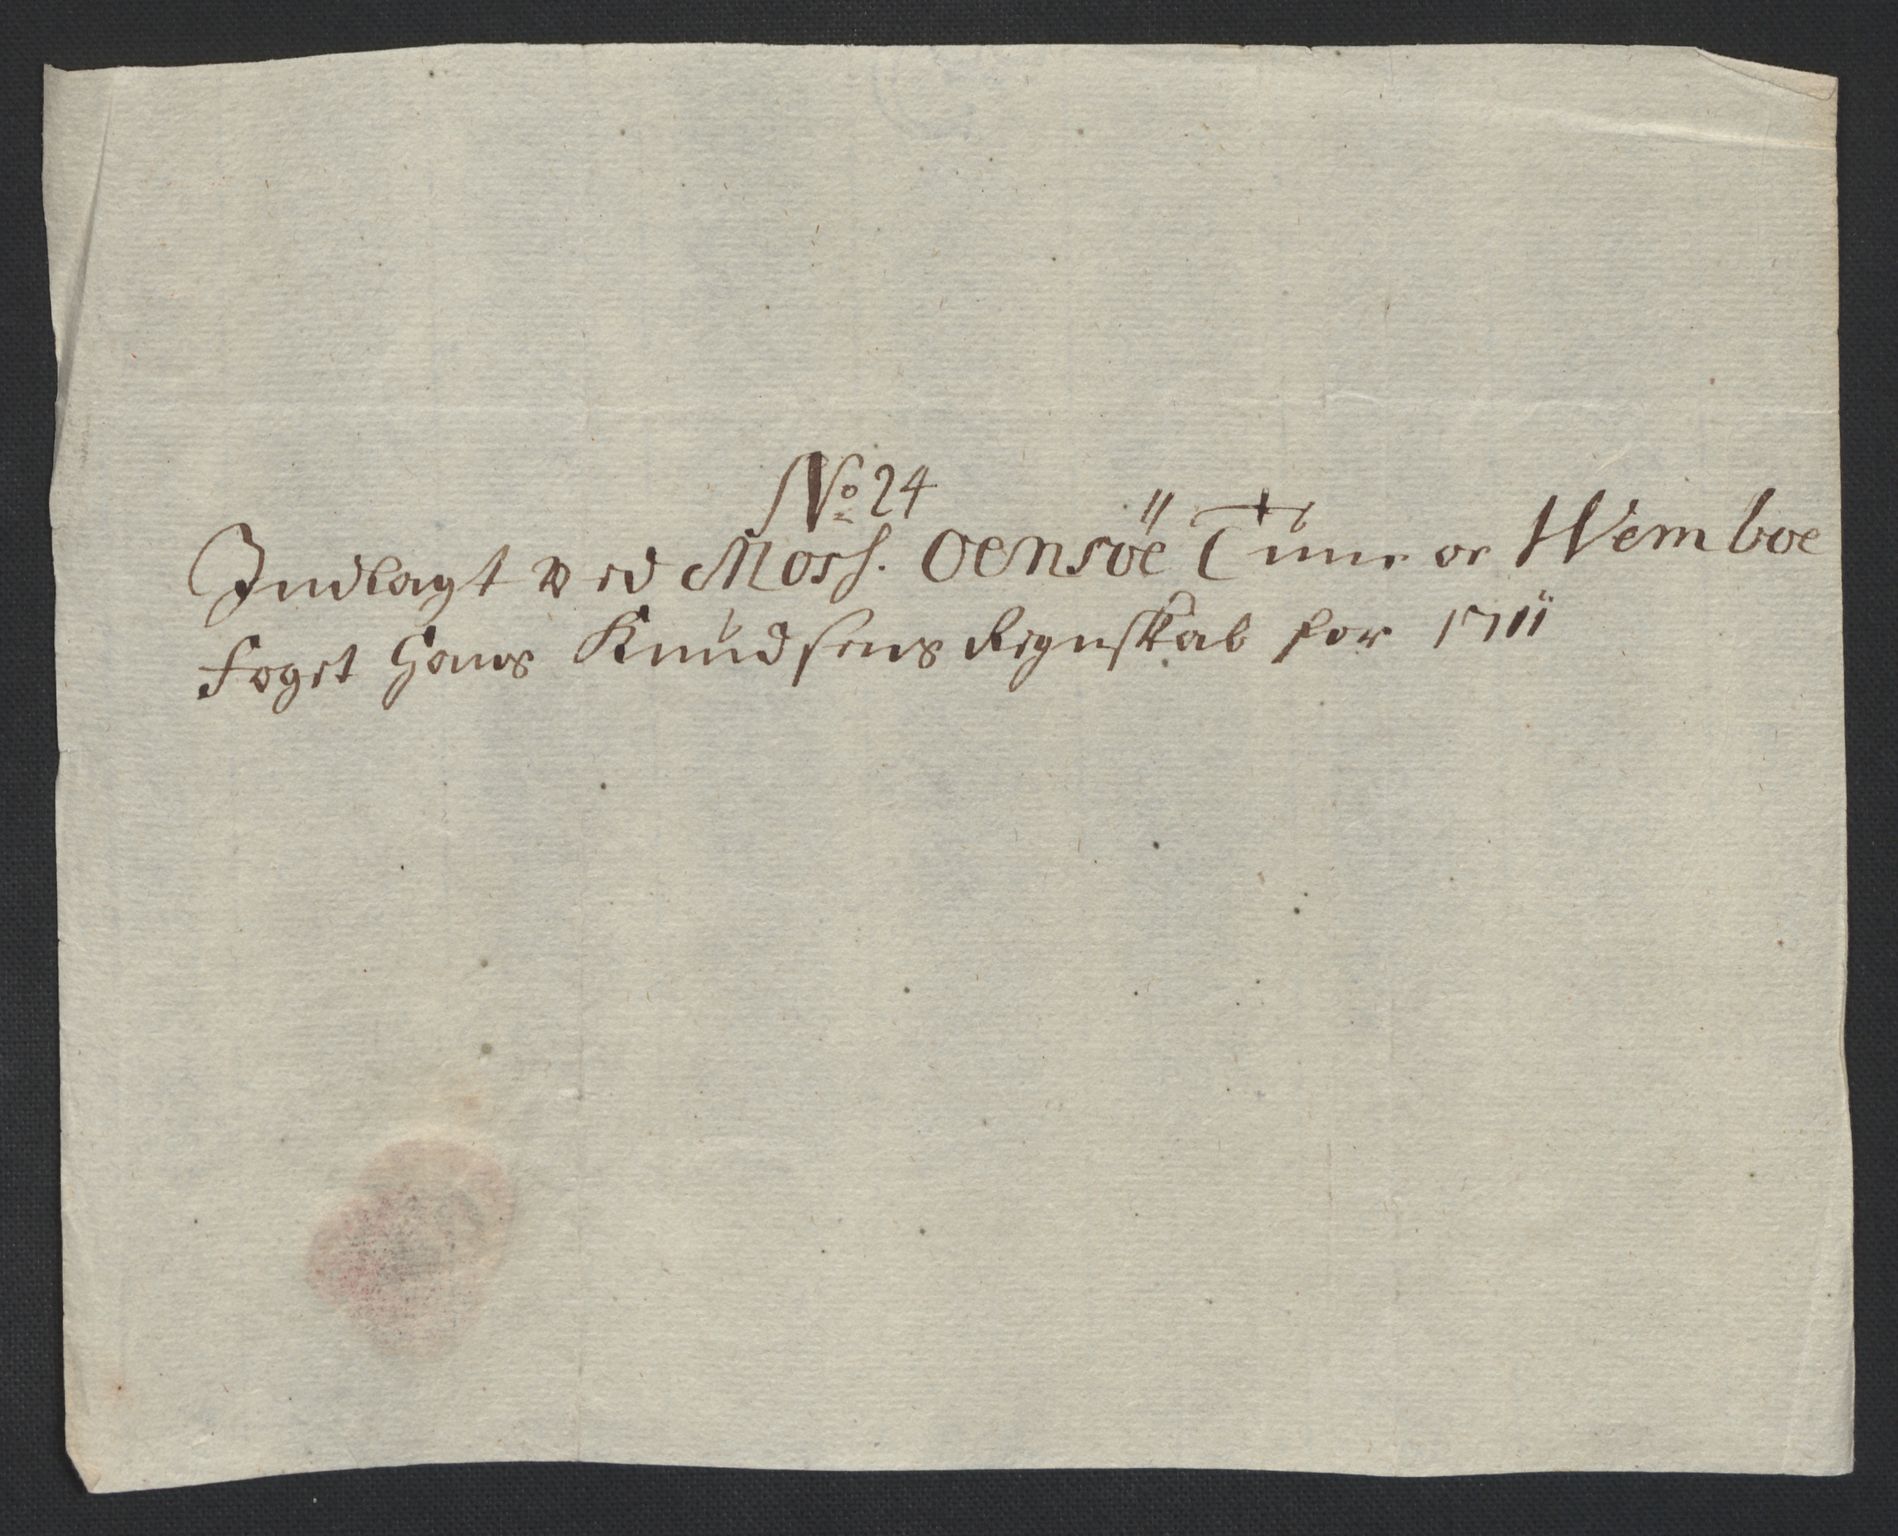 No 24
Indlagt ved Moss. Oensöe Tune oc Wemboe
Foget Hans Knudsens Regnskab for 1711